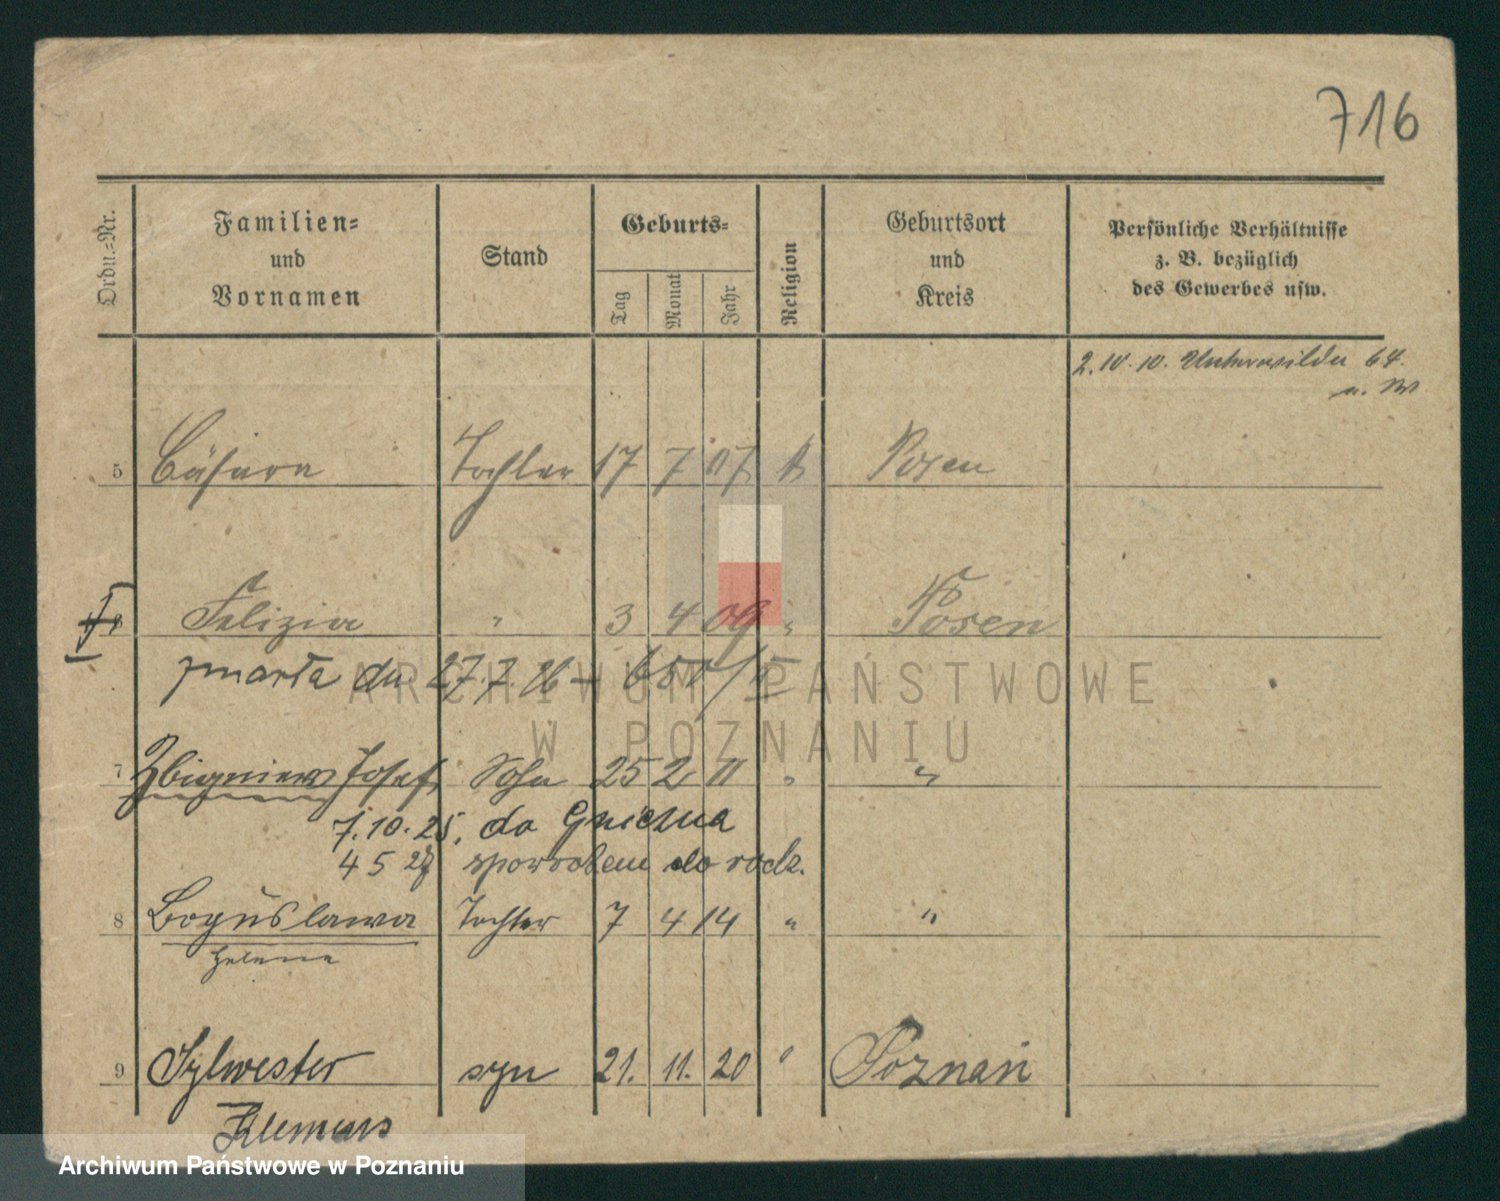 716
Ordn.-Nr.
Familien-
und
Vornamen
Stand
Geburts-
Tag
Monat
Jahr
Religion
Geburtsort
und
Kreis
Persönliche Verhältnisse
z. B. bezüglich
des Gewerbes usw.
2. 10. 10. Unterwilda 64.
5 Cäsara Tochter 17 7 07 k Posen
Felizia " 3 4 09 " Posen
zmarła dn 27.7 26 - 650/II
ARCHIWUM PAŃSTWOWE
W POZNANIU
7 Zbigniew Josef Sohn 25 2 11 " "
7.10.25. do Gniezna
4 5 27 spowrotem do rodz.
8 Boguslawa Tochter 7 4 14 " "
Helena
9 Sylwester syn 21. 11. 20 " Poznań
Klemens
Archiwum Państwowe w Poznaniu